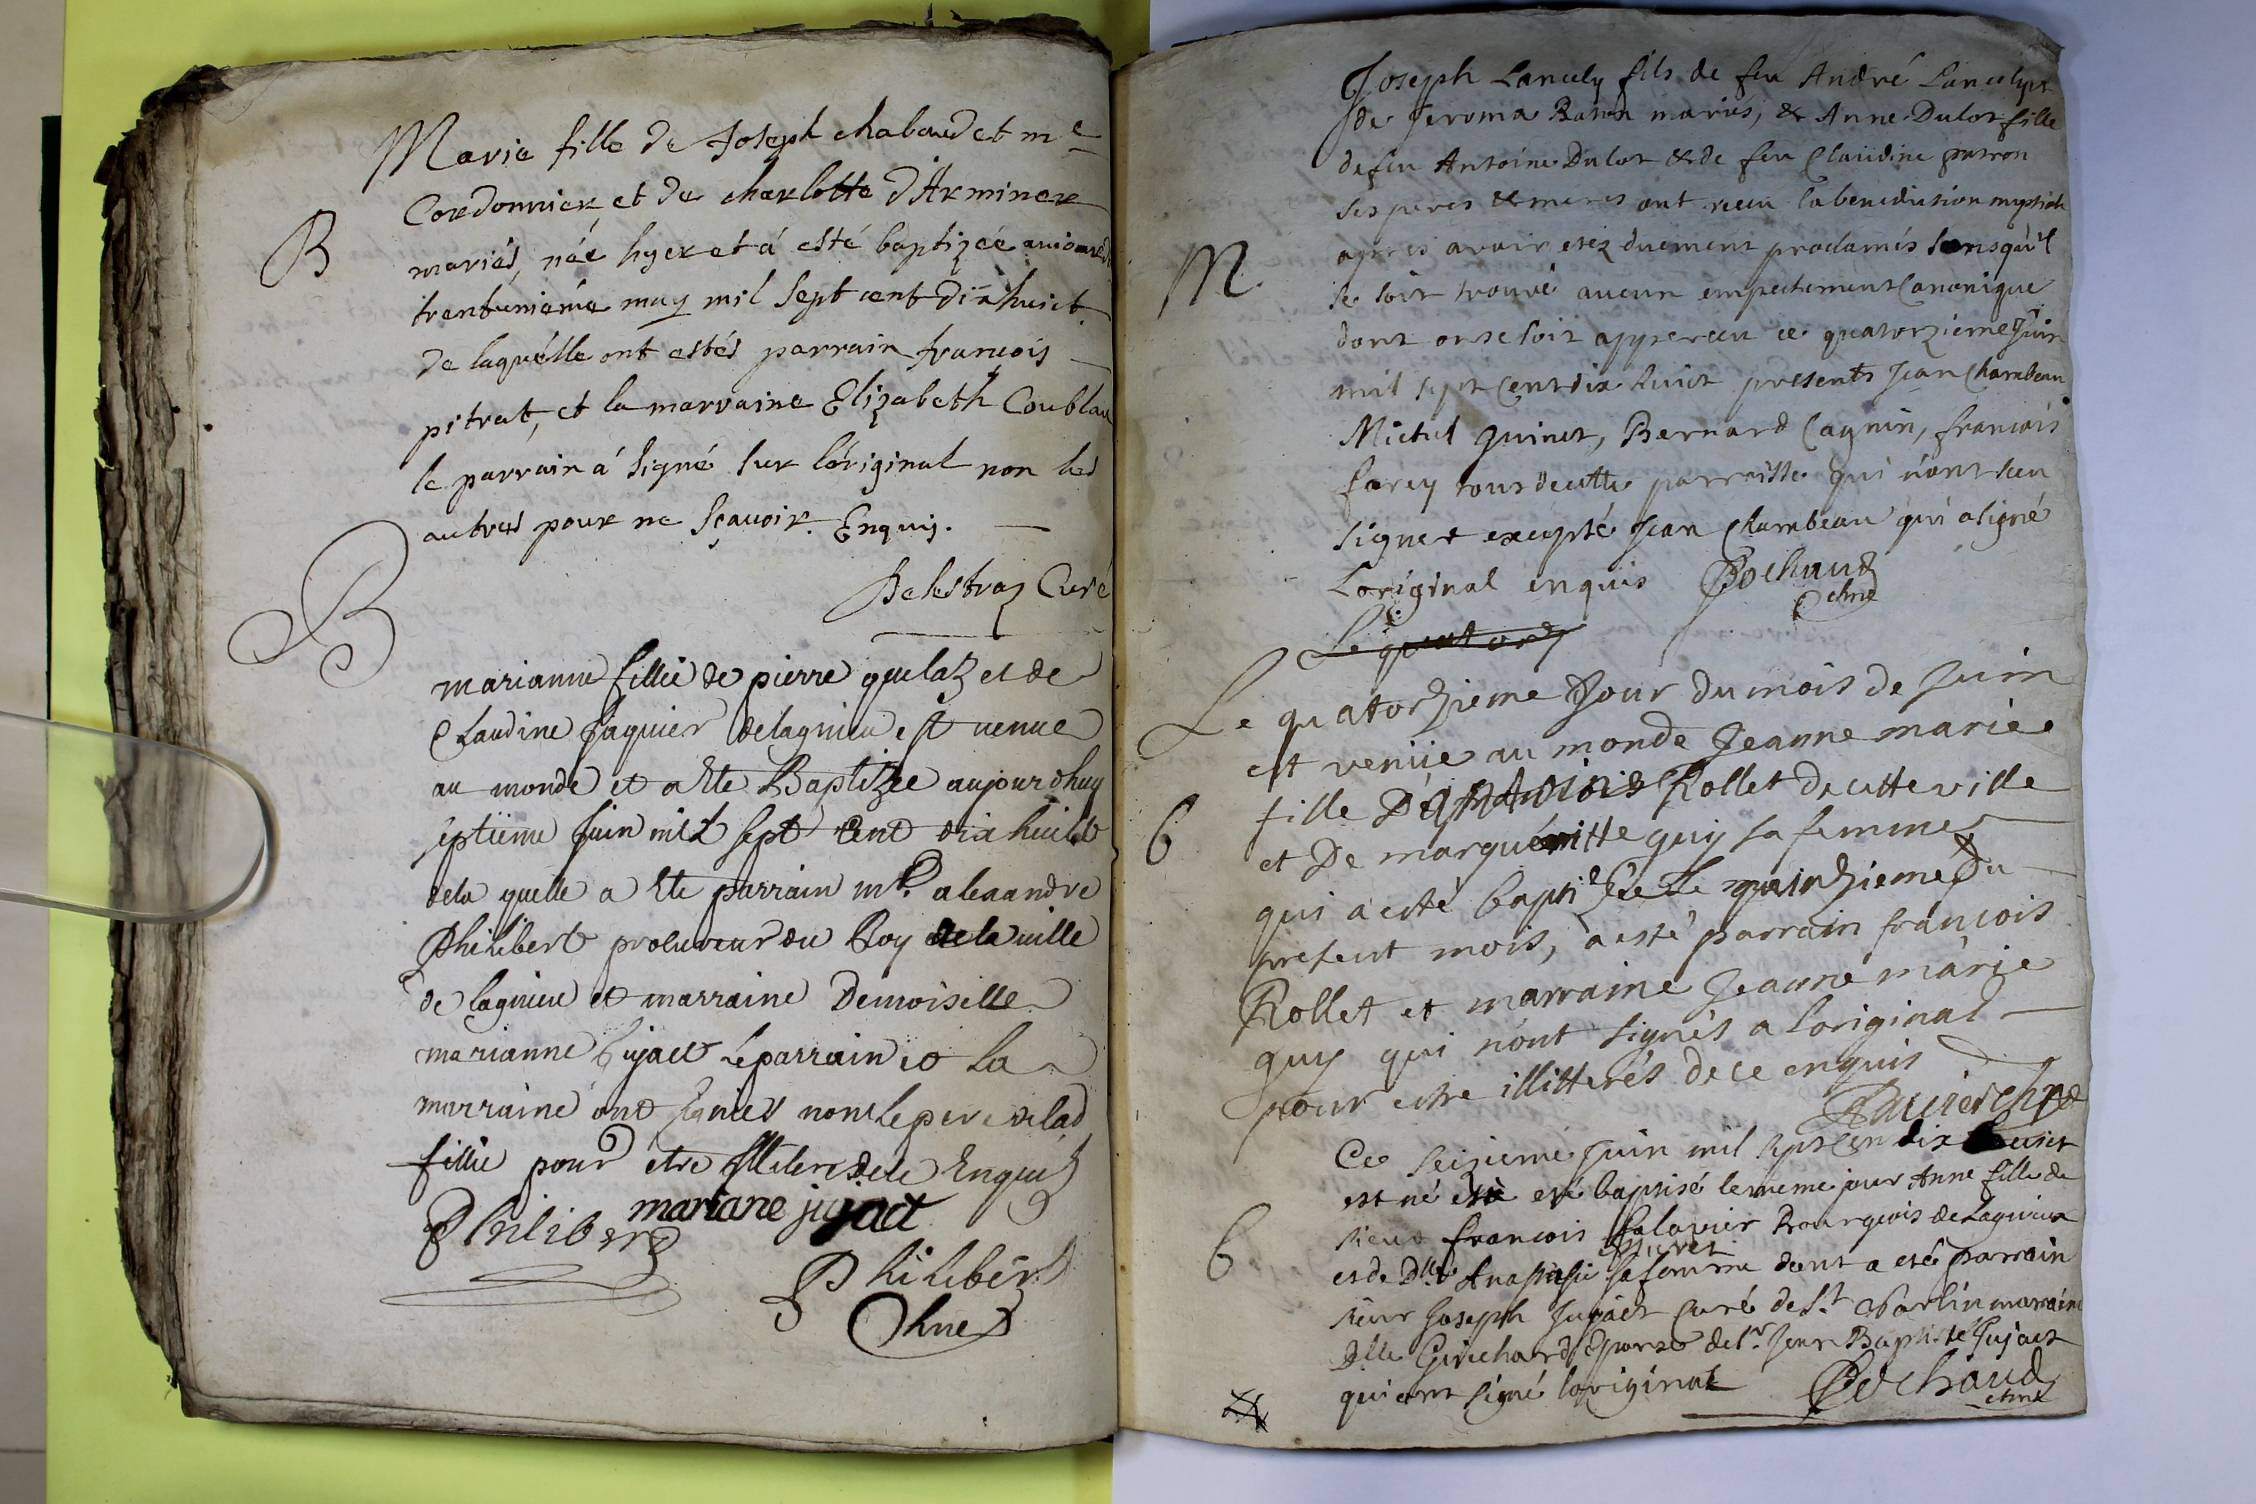 Marie fille de Joseph chaboud et m.e
Cordonnier et de charlotte d'Arminex
B
mariés, née hyer et á esté baptizée
trentuniéme may mil sept cent dixhuict.
de laquélle ont estés parrain francois
pitrat, et la marraine Elizabeth Coublau
le parrain á signé sur lóriginal non les
autres pour ne sçauoir. Enquis.
Curé
B
marianne fillie de pierre quelaz et de
Claudine Jaquier delagnieu est uenue
au monde et a ete Baptizee aujourdhuy
septieme Juin mil sept cent dix huict
dela quelle a ete parrain mr. alexandre
Philibert procureur du Roy de la uille
de lagnieu et marraine Demoiselle
marianne le parrain et la
marraine ont signer non le pere de lad
fillie pour etre illitere de ce Enquis
Philibert mariane jujact
Philibert
Chne
Joseph Lancely fils de feu André Lancely et
de Jeroma mariés, & Anne Dulot fille
de feu Antoine Dulot & de feu Claudine patron
ses peres & meres ont receu la benediction
M
apres avoir etez duement proclamés sans qu'il
se soit trouvé aucun empechement Canonique
dont on se soit appercu ce quatorzieme Juin
mil sept Cent dix huict presents Jean Chambeau
Michel quinet, Bernard Cagnin, francois
farcy tous de cette parroisse qui n'ont sceu
signer excepté Jean Chambeau qui a signé
Loriginal enquis Bochaud
chne
Le quatorz
Le quatorzieme Jour du mois de Juin
est venüe au monde Jeanne marie
fille De francois Rollet de cette ville
6
et De marguéritte guy sa femme
qui a esté baptizée Le quinzieme Du
present mois, a esté parrain francois
Rollet et marraine Jeanne marie
guy qui nont signés a loriginal
pour estre illitterés de ce enquis
Ravier chne
Ce seizieme Juin mil sept cen dix huict
est né eté baptisé le meme jour Anne fille de
sieur francois Bourgeois de Lagnieux
6
et de Dlle Anastasie sa femme dont a eté parrain
sieur Joseph Jujact Curé de St. Martin marraine
Dlle Guichard Epouse de Sr. Jean Baptiste Jujact
qui ont signé loriginal Bochaud
chne